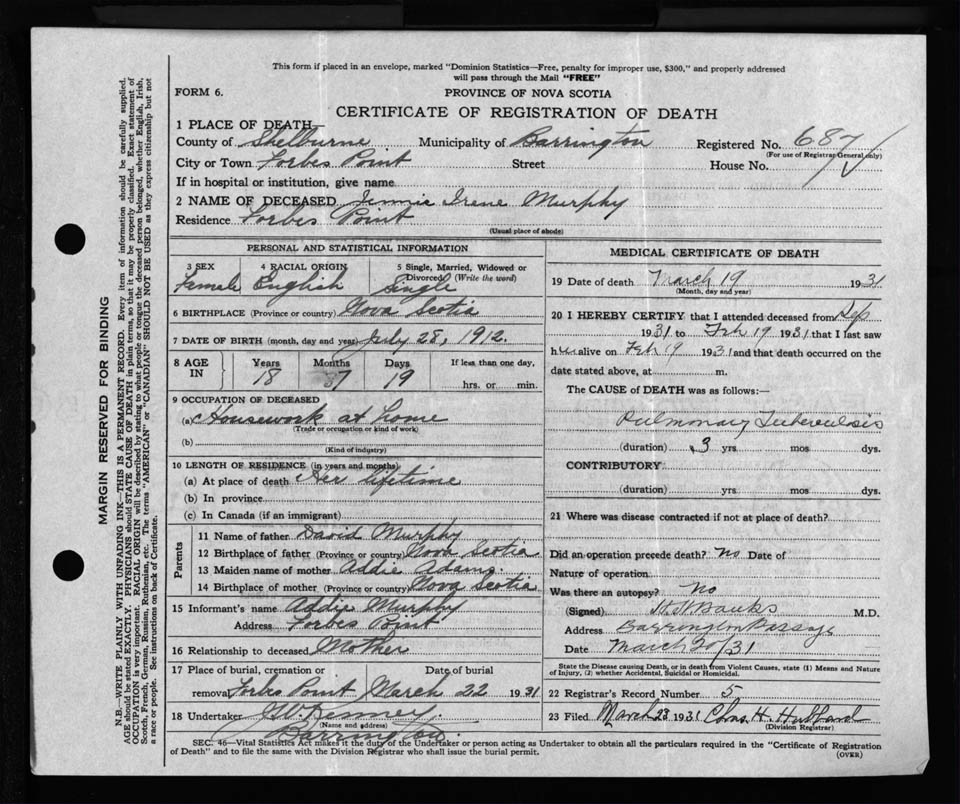 This form if placed in an envelope, marked "Dominion Statistics—Free, penalty for improper use, $300," and properly addressed
will pass through the Mail "FREE"
FORM 6. PROVINCE OF NOVA SCOTIA
CERTIFICATE OF REGISTRATION OF DEATH
1 PLACE OF DEATH—
County of Shelburne Municipality of Barrington Registered No. 687
(For use of Registrar General only)
City or Town Forbes Point Street House No.
If in hospital or institution, give name
2 NAME OF DECEASED Jennie Irene Murphy
Residence Forbes Point
(Usual place of abode)
PERSONAL AND STATISTICAL INFORMATION
3 SEX 4 RACIAL ORIGIN 5 Single, Married, Widowed or
Divorced (Write the word)
Female English Single
6 BIRTHPLACE (Province or country) Nova Scotia
7 DATE OF BIRTH (month, day and year) July 28, 1912.
8 AGE IN Years Months Days If less than one day,
18 7 19 hrs. or min.
9 OCCUPATION OF DECEASED
(a) Housework at home
(Trade or occupation or kind of work)
(b)
(Kind of industry)
10 LENGTH OF RESIDENCE (in years and months)
(a) At place of death Her lifetime
(b) In province
(c) In Canada (if an immigrant)
Parents
11 Name of father David Murphy
12 Birthplace of father (Province or country) Nova Scotia
13 Maiden name of mother Addie Adams.
14 Birthplace of mother (Province or country) Nova Scotia
15 Informant's name Addie Murphy
Address Forbes Point
16 Relationship to deceased Mother
17 Place of burial, cremation or Date of burial
removal Forbes Point March 22 1931
18 Undertaker J W Kenney
(Name and address)
Barrington.
MEDICAL CERTIFICATE OF DEATH
19 Date of death March 19 1931
(Month, day and year)
20 I HEREBY CERTIFY that I attended deceased from Sep
1931 to Feb 19 1931 that I last saw
her alive on Feb 19 1931 and that death occurred on the
date stated above, at m.
The CAUSE of DEATH was as follows:
Pulmonary Tuberculosis
(duration) 3 yrs mos dys.
CONTRIBUTORY
(duration) yrs. mos. dys.
21 Where was disease contracted if not at place of death?
Did an operation precede death? No Date of
Nature of operation
Was there an autopsy? No
(Signed) Banks M.D.
Address Barrington Passage
Date March 20/31
State the Disease causing Death, or in death from Violent Causes, state (1) Means and Nature
of Injury, (2) whether Accidental, Suicidal or Homicidal.
22 Registrar's Record Number 5
23 Filed March 23 1931 Chas. H. Hubbard
(Division Registrar)
SEC. 46—Vital Statistics Act makes it the duty of the Undertaker or person acting as Undertaker to obtain all the particulars required in the "Certificate of Registration
of Death" and to file the same with the Division Registrar who shall issue the burial permit. (OVER)
MARGIN RESERVED FOR BINDING
N.B.—WRITE PLAINLY WITH UNFADING INK—THIS IS A PERMANENT RECORD. Every item of information should be carefully supplied.
AGE should be stated EXACTLY. PHYSICIANS should STATE CAUSE OF DEATH in plain terms, so that it may be properly classified. Exact statement of
OCCUPATION is very important. RACIAL ORIGIN will be described by stating to what people or tongue the deceased person belonged, whether English, Irish,
Scotch, French, German, Russian, Ruthenian, etc. The terms "AMERICAN" or "CANADIAN" SHOULD NOT BE USED as they express citizenship but not
a race or people. See instructions on back of Certificate.